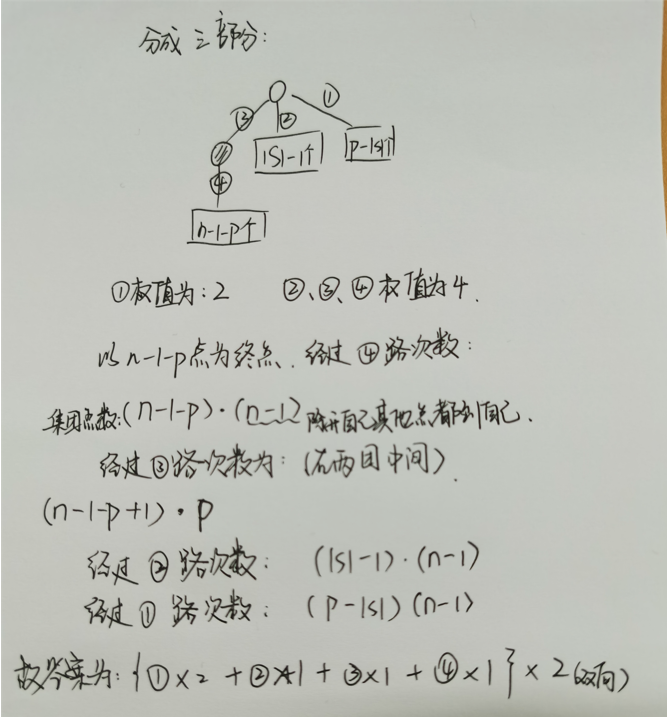 分成三部分:
① ③ ②
|S|-1个 p-|s|个
④
n-1-p个
①权值为: 2 ②、③、④权值为4.
以n-1-p点为终点. 经过④路次数:
集团点数:(n-1-p)·(n-1) 除开自己其他点都到自己.
经过③路次数为: (在两团中间).
(n-1-p+1)·p
经过②路次数: (|s|-1)·(n-1)
经过①路次数: (p-|s|)(n-1)
故答案为:{①×2+②×1+③×1+④×1}×2(双向)